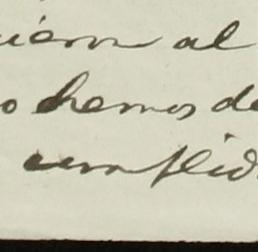 uieren al
o hemos de
cumplid